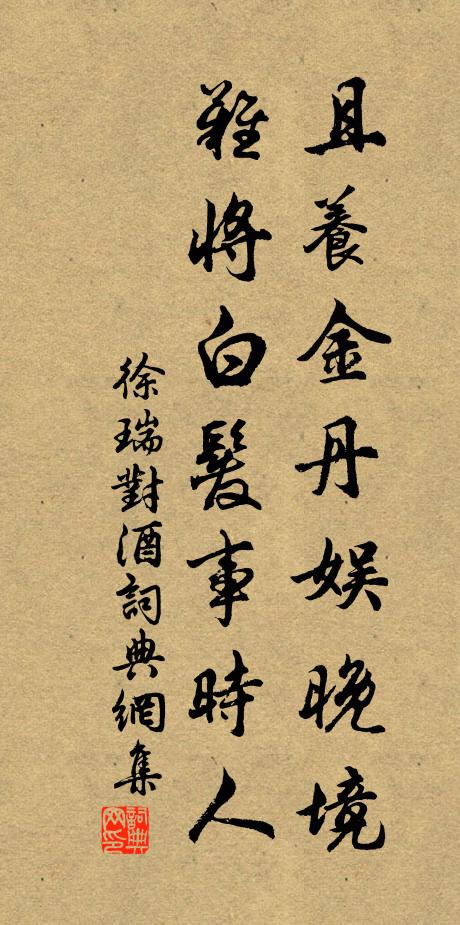 且養金丹娛晚境
難將白髮事時人
徐瑞對酒詞典網集
詞典網印